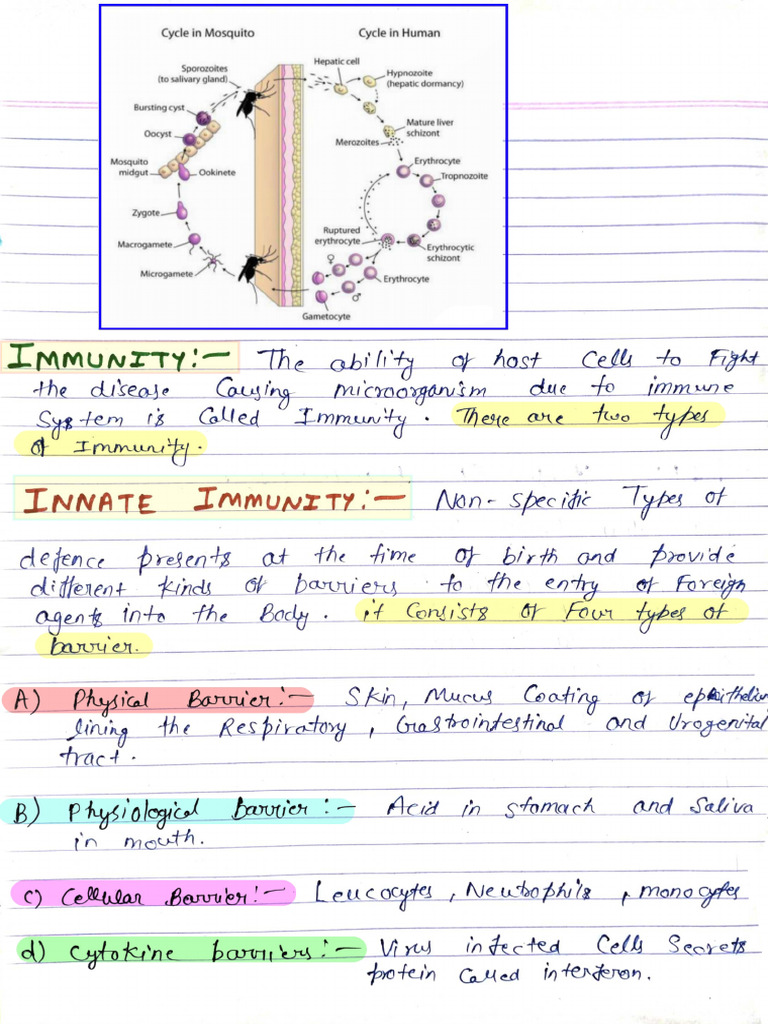 Cycle in Mosquito
Cycle in Human
Sporozoites
(to salivary gland)
Bursting cyst
Oocyst
Mosquito
midgut
Ookinete
Zygote
Macrogamete
Microgamete
Hepatic cell
Hypnozoite
(hepatic dormancy)
Mature liver
schizont
Merozoites
Erythrocyte
Tropnozoite
Ruptured
erythrocyte
Erythrocytic
schizont
♀
Erythrocyte
♂
Gametocyte
IMMUNITY:— The ability of host cells to Fight
the disease Causing microorganism due to immune
System is Called Immunity. There are two types
of Immunity.
INNATE IMMUNITY:— Non-specific Types of
defence presents at the time of birth and provide
different kinds of barriers to the entry of Foreign
agents into the Body. it Consists of Four types of
barrier.
A) Physical Barrier:— Skin, Mucus Coating of epithelium
lining the Respiratory, Gastrointestinal and Urogenital
tract.
B) Physiological Barrier:— Acid in stomach and Saliva
in mouth.
c) Cellular Barrier:— Leucocytes, Neutrophils, monocytes
d) Cytokine barriers:— Virus infected Cells Secrets
protein Called interferon.